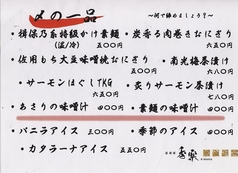 〆の一品
〜何で締めましょう？〜
・揖保乃糸特級かけ素麺
(温/冷) 五〇〇円
・炭香る肉巻きおにぎり
六五〇円
・佐用もち大豆味噌焼むにぎり
五〇〇円
・南光梅茶漬け
六五〇円
・サーモンほぐしTKG
六八〇円
・炙りサーモン茶漬け
七八〇円
・あさりの味噌汁 四〇〇円
・素麺の味噌汁 四〇〇円
・バニラアイス 三〇〇円
・季節のアイス 四〇〇円
・カタラーナアイス 五〇〇円